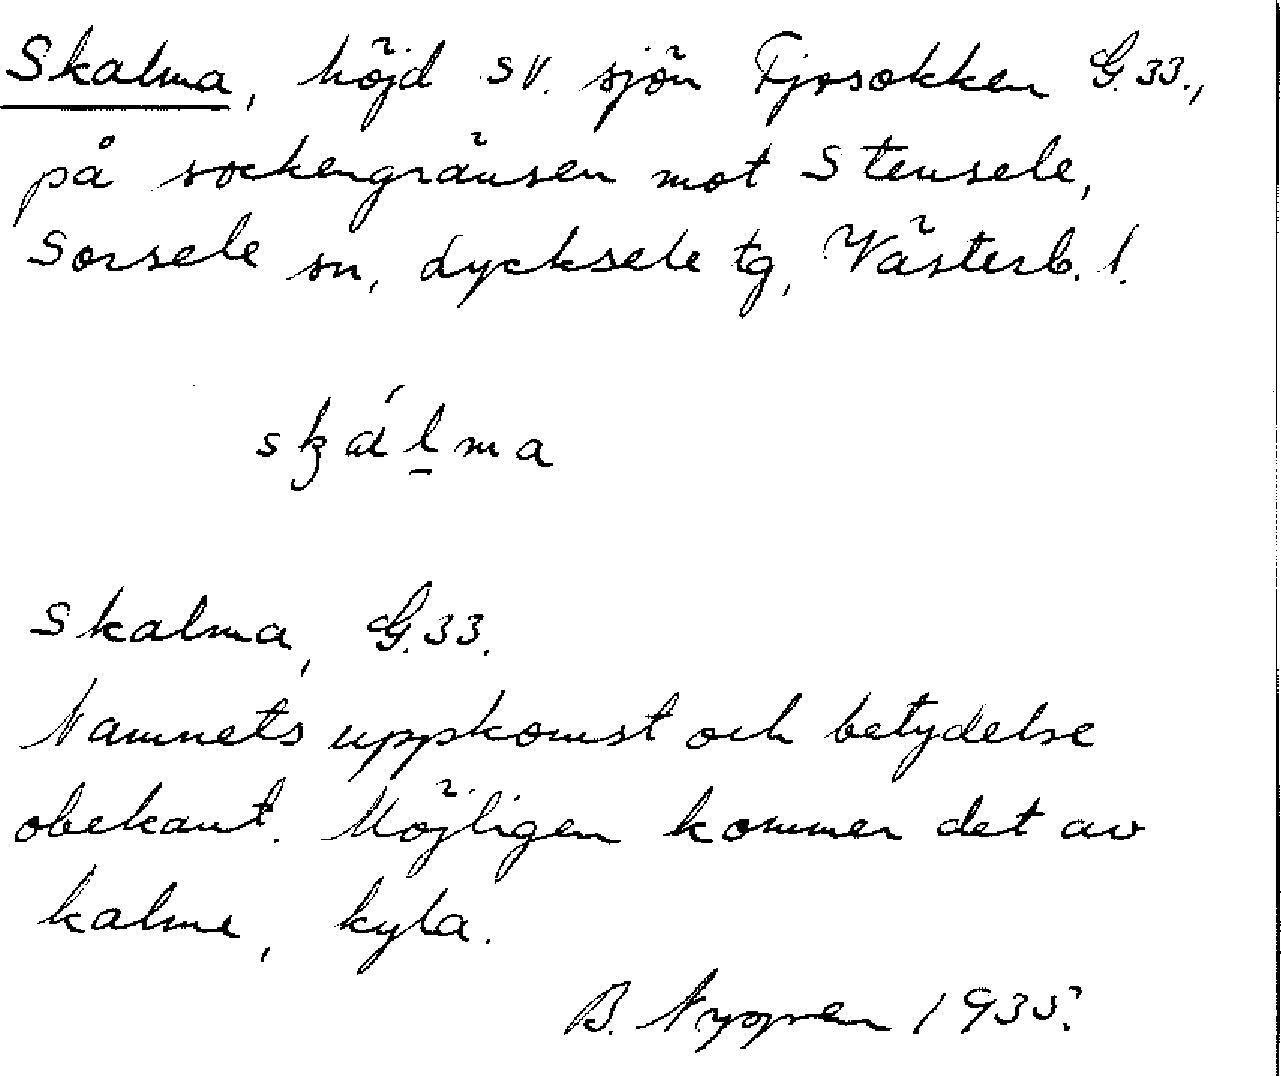 Skalma, höjd SV. sjön Fjosokken G.33.,
på sockengränsen mot Stensele,
Sorsele sn, Lycksele tg, Västerb. l.
skálma
Skalma, G.33.
Namnets uppkomst och betydelse
obekant. Möjligen kommer det av
kalme, kyla.
B. 1935.